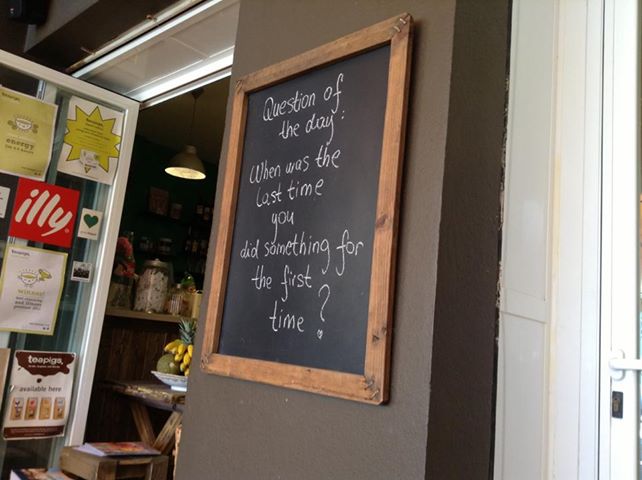 Question of
the day:
When was the
last time
you
did something for
the first
time?
teapigs.
energy
illy
teapigs.
winner!
teapigs.
available here